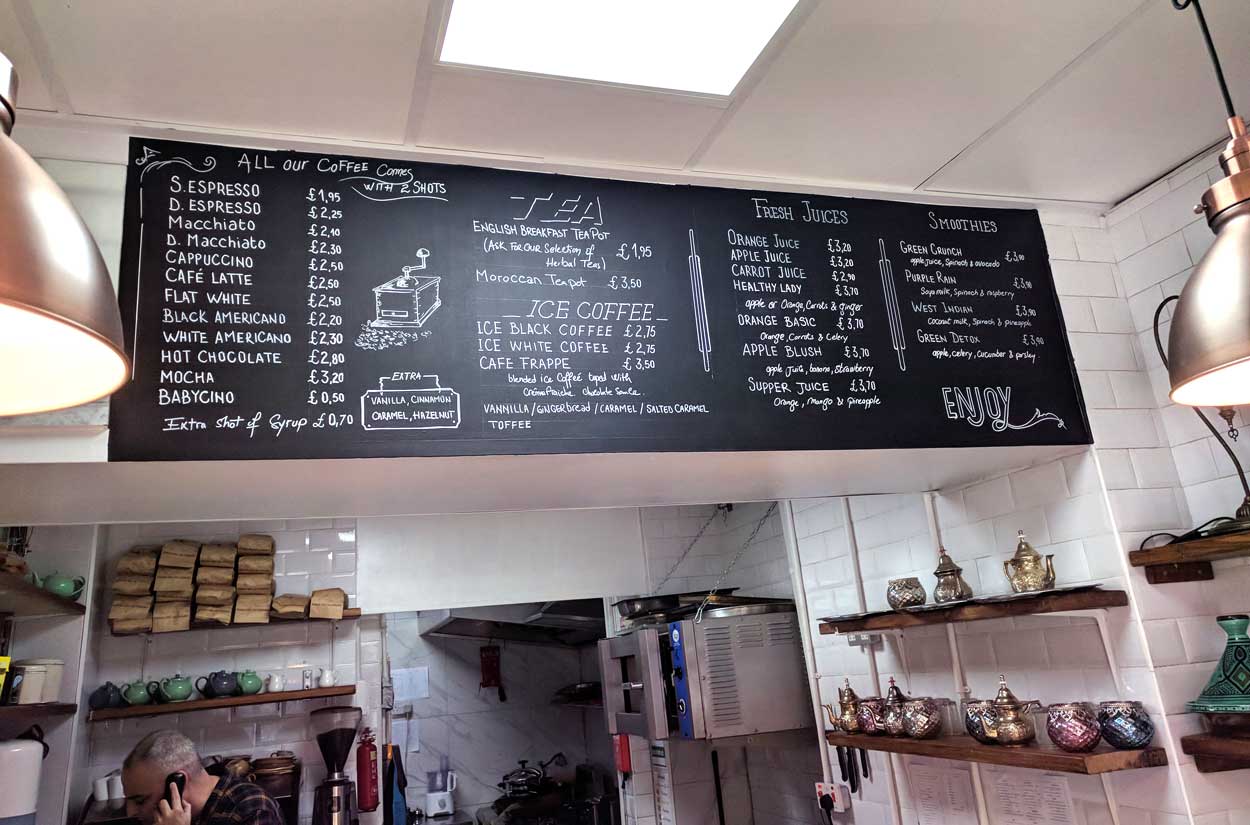 ALL our COFFEE Comes
WITH 2 SHOTS
S. ESPRESSO £1,95
D. ESPRESSO £2,25
Macchiato £2,10
D. Macchiato £2,30
CAPPUCCINO £2,50
CAFÉ LATTE £2,50
FLAT WHITE £2,50
BLACK AMERICANO £2,20
WHITE AMERICANO £2,30
HOT CHOCOLATE £2,80
MOCHA £3,20
BABYCINO £0,50
Extra shot of Syrup £0,70
EXTRA
VANILLA, CINNAMON
CARAMEL, HAZELNUT
TEA
ENGLISH BREAKFAST TEA POT
(ASK FOR OUR Selection of £1,95
Herbal Teas)
Moroccan Teapot £3,50
ICE COFFEE
ICE BLACK COFFEE £2,75
ICE WHITE COFFEE £2,75
CAFE FRAPPE £3,50
blended ice Coffee toped with
chocolate
VANNILLA / GINGERbread / CARAMEL / SALTED CARAMEL
TOFFEE
FRESH JUICES
ORANGE JUICE £3,20
APPLE JUICE £3,20
CARROT JUICE £2,90
HEALTHY LADY £3,70
apple or Orange, Carrots & ginger
ORANGE BASIC £3,70
Orange, Carrots & Celery
APPLE BLUSH £3,70
apple juice, banana, Strawberry
SUPPER JUICE £3,70
Orange, Mango & Pineapple
SMOOTHIES
GREEN CRUNCH £3,90
apple juice, Spinach & avocado
PURPLE RAIN £3,90
Soya milk, Spinach & raspberry
WEST INDIAN £3,90
Coconut milk, Spinach & pineapple
GREEN DETOX £3,90
apple, celery, cucumber & parsley.
ENJOY